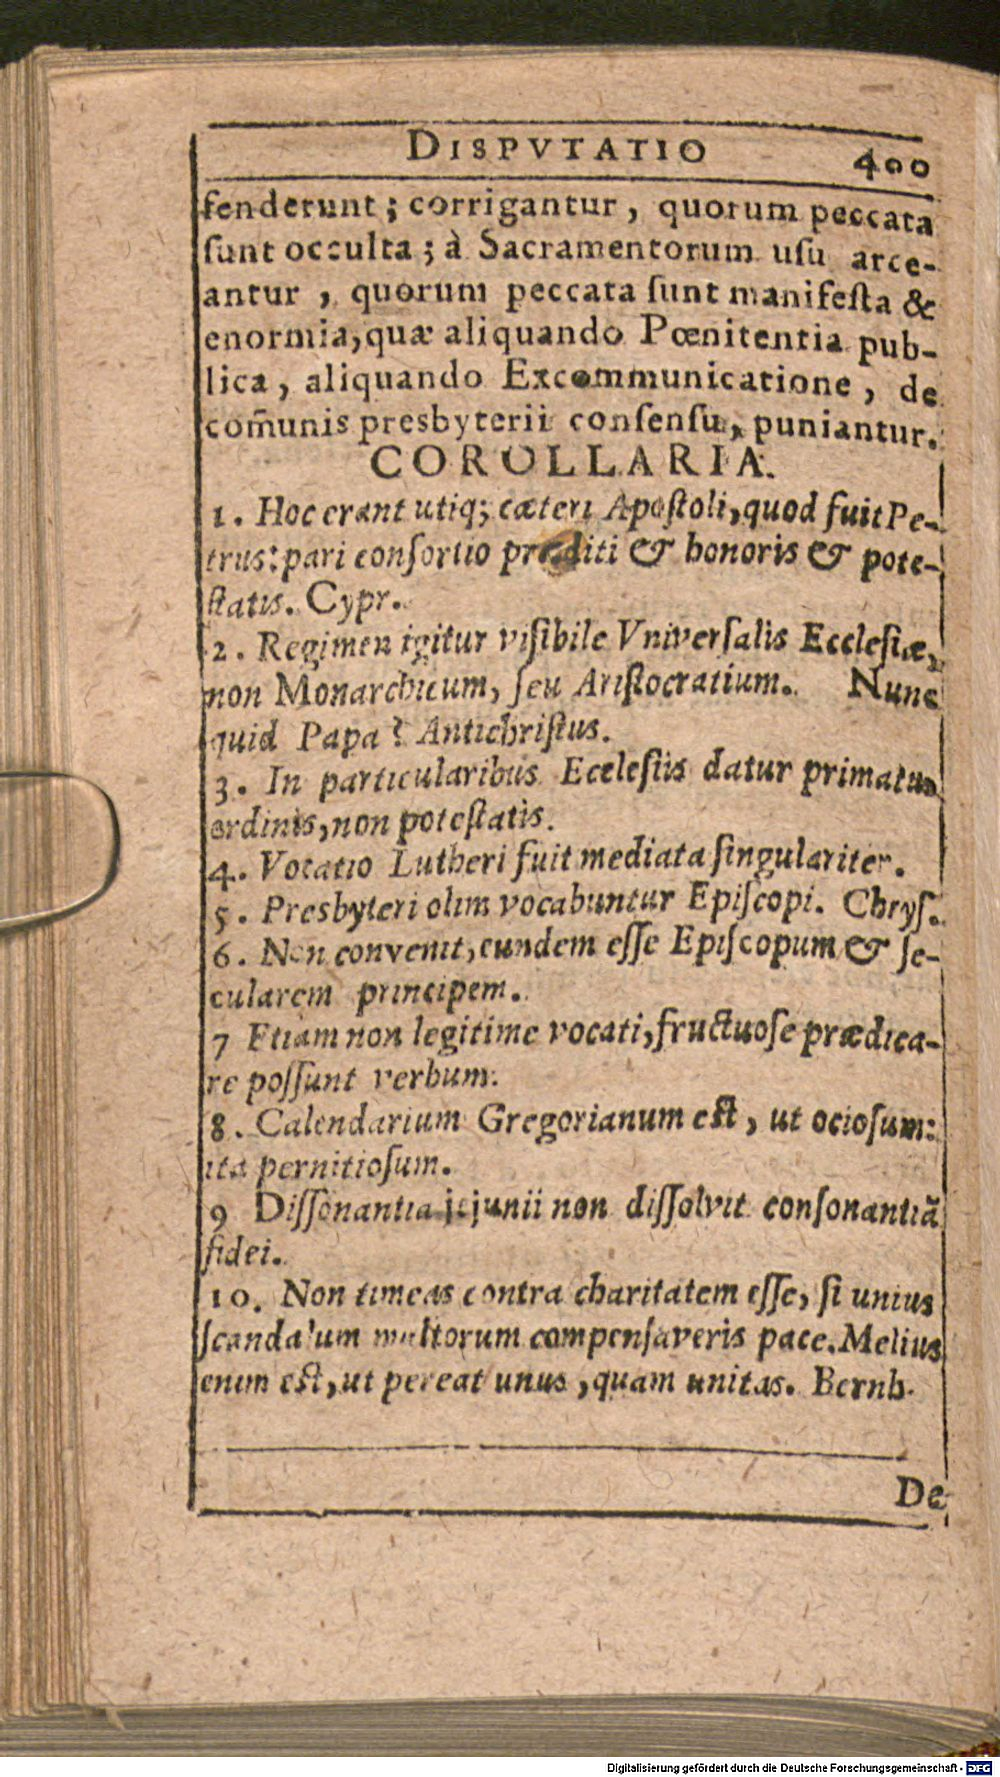 DISPVTATIO 400
fenderunt; corrigantur, quorum peccata
ſunt occulta; à Sacramentorum uſu arce-
antur, quorum peccata ſunt manifeſta &
enormia, quæ aliquando Pœnitentia pub-
lica, aliquando Excommunicatione, de
com̃unis presbyterii conſenſu, puniantur.
COROLLARIA.
1. Hoc erant utiq; cæteri Apoſtoli, quod fuit Pe-
trus: pari conſortio præditi & honoris & pote-
ſtatis. Cypr.
2. Regimen igitur viſibile Vniverſalis Eccleſiæ,
non Monarchicum, ſeu Ariſtocratium. Nunc
quid Papa? Antichriſtus.
3. In particularibus Eccleſiis datur primatus
ordinis, non poteſtatis.
4. Vocatio Lutheri fuit mediata ſingulariter.
5. Presbyteri olim vocabuntur Epiſcopi. Chryſ.
6. Non convenit, eundem eſſe Epiſcopum & ſe-
cularem principem.
7 Etiam non legitime vocati, fructuoſe prædica-
re poſſunt verbum.
8. Calendarium Gregorianum eſt, ut ocioſum:
ita pernitioſum.
9 Diſſonantia jejunii non diſſolvit conſonantiã
fidei.
10. Non timeas contra charitatem eſſe, ſi unius
ſcandalum multorum compenſaveris pace. Melius
enim eſt, ut pereat unus, quam unitas. Bernh.
De
Digitalisierung gefördert durch die Deutsche Forschungsgemeinschaft - DFG